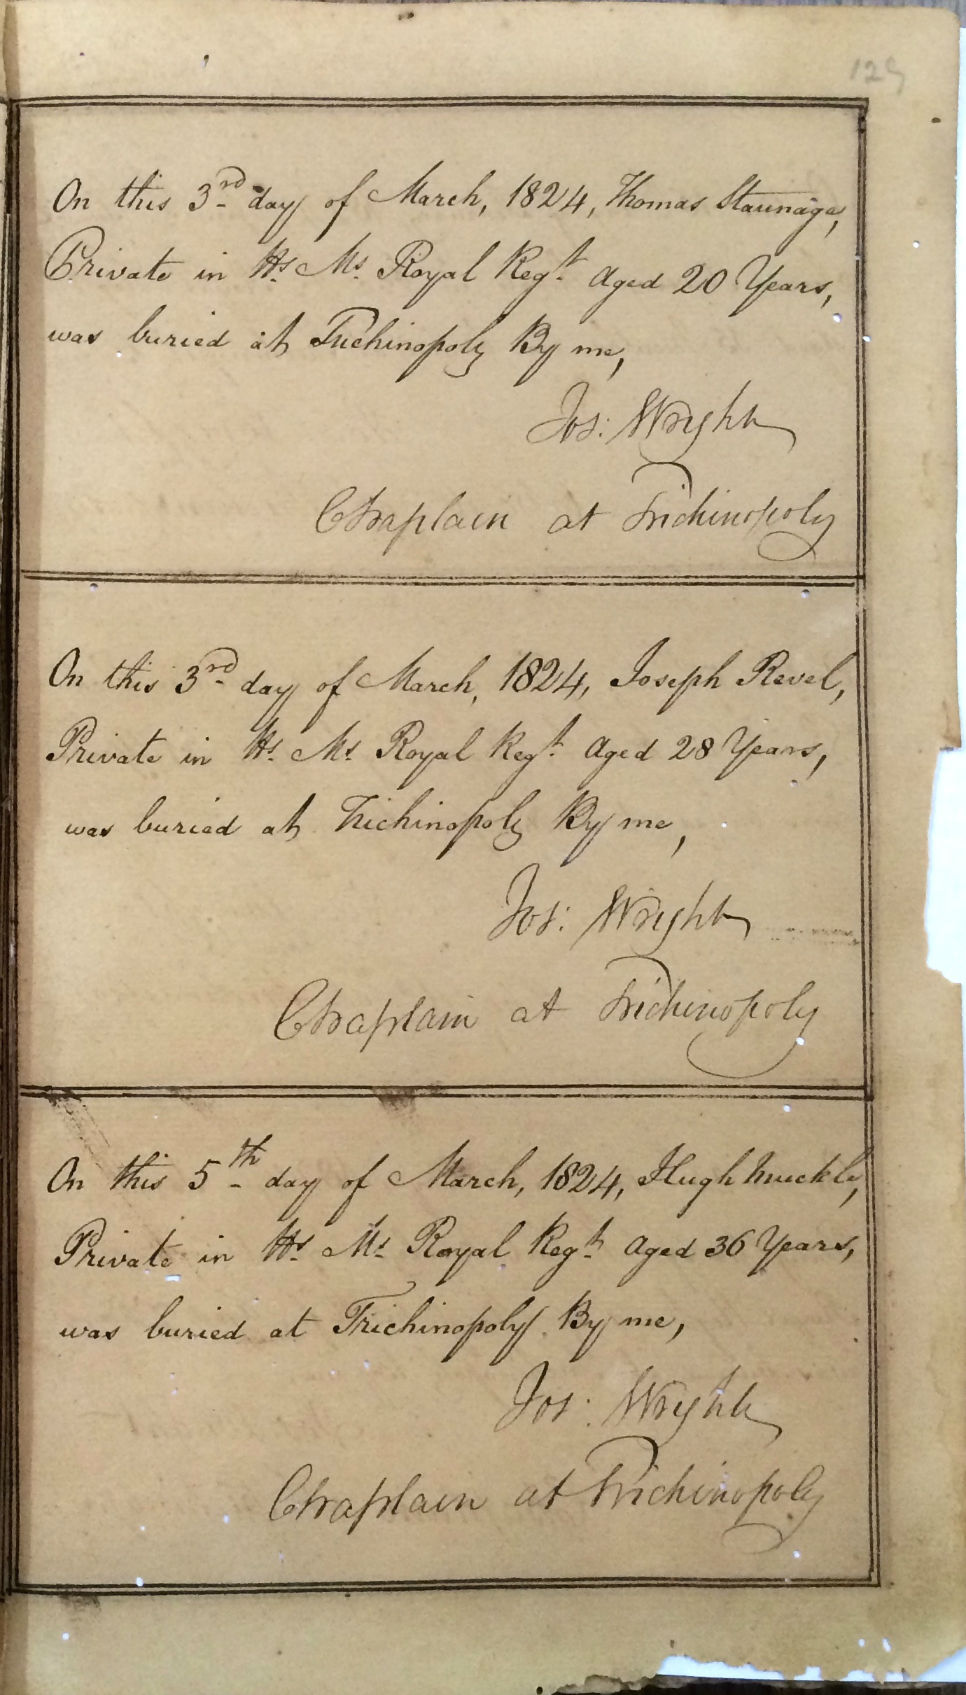 129
On this 3rd day of March, 1824, Thomas Staunage,
Private in Hs. Ms. Royal Regt. Aged 20 Years,
was buried at Trichinopoly By me,
Jos: Wright
Chaplain at Trichinopoly
On this 3rd day of March, 1824, Joseph Revel,
Private in Hs. Ms. Royal Regt. Aged 28 Years,
was buried at Trichinopoly By me,
Jos: Wright
Chaplain at Trichinopoly
On this 5th day of March, 1824, Hugh
Private in Hs. Ms. Royal Regt. Aged 36 Years,
was buried at Trichinopoly By me,
Jos: Wright
Chaplain at Trichinopoly